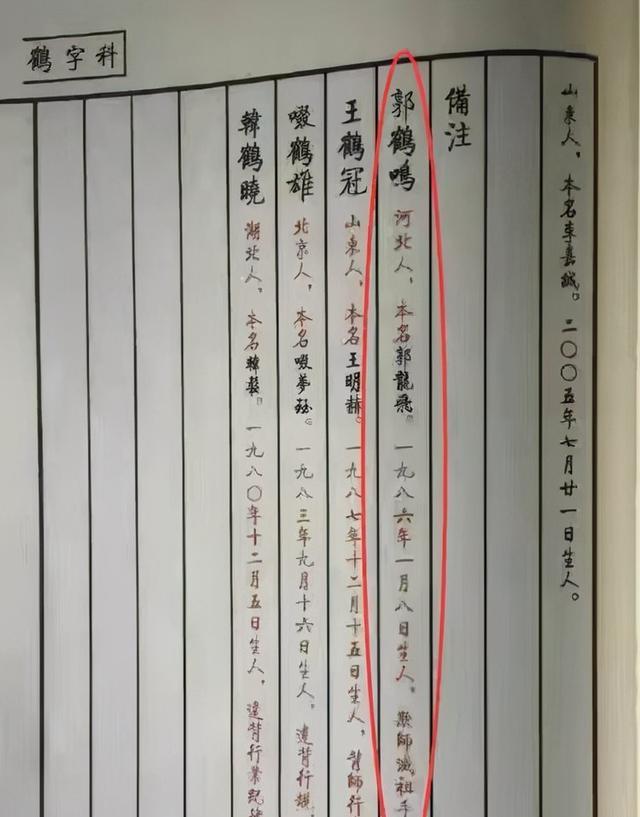 鶴字科
山東人，本名李嘉誠。二〇〇五年七月廿一日生人。
備注
郭鶴鳴 河北人，本名郭龍飛。一九八六年一月八日生人。欺師滅祖手
王鶴冠 山東人，本名王明赫。一九八七年十二月十五日生人，背師行
啜鶴雄 北京人，本名啜夢。一九八三年九月十六日生人。違背行規
韓鶴曉 湖北人，本名韓。一九八〇年十二月五日生人，違背行業紀